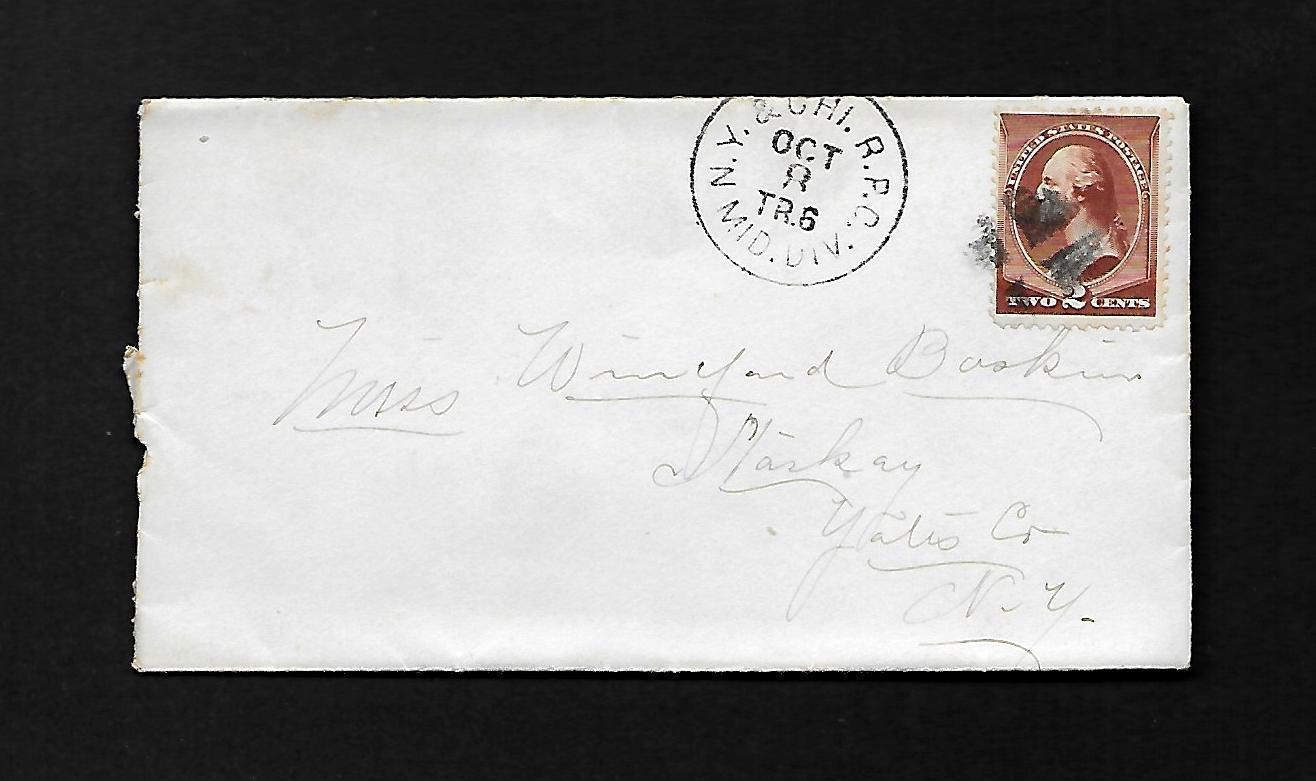 N.Y. & CHI. R.P.O.
OCT
8
TR.6
MID. DIV.
UNITED STATES POSTAGE
TWO 2 CENTS
Miss Winifard Baskin
Starkay
Yates Co
N.Y.